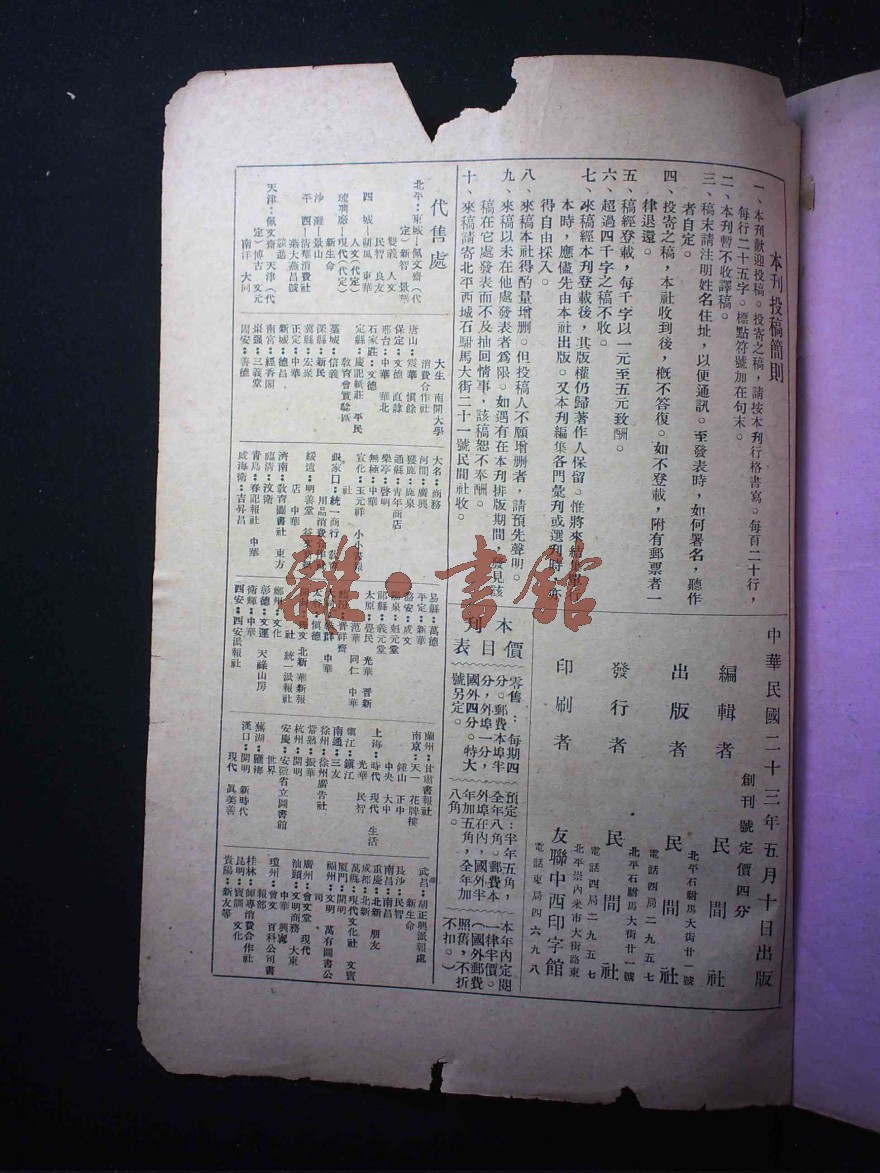 本刊投稿簡則
一、本刊歡迎投稿。投寄之稿，請按本刊行格書寫。每頁二十行，
每行二十五字。標點符號加在句末。
二、本刊暫不收譯稿。
三、稿末請注明姓名住址，以便通訊。至發表時，如何署名，聽作
者自定。
四、投寄之稿，本社收到後，概不答復。如不登載，附有郵票者一
律退還。
五、稿經登載，每千字以一元至五元致酬。
六、超過四千字之稿不收。
七、來稿經本刊登載後，其版權仍歸著作人保留。惟將來結
本時，應儘先由本社出版。又本刊編集各門彙刊或選刊時，亦
得自由採入。
八、來稿本社得酌量增删。但投稿人不願增删者，請預先聲明。
九、來稿以未在他處發表者爲限。如遇有在本刊排版期間，發見該
稿在它處發表而不及抽回情事，該稿恕不奉酬。
十、來稿請寄北平西城石駙馬大街二十一號民間社收。
中華民國二十三年五月十日出版
創刊號定價四分
編輯者 民間社
北平石駙馬大街廿一號
電話四局二九五七
出版者 民間社
發行者 民間社
北平石駙馬大街廿一號
電話四局二九五七
印刷者 友聯中西印字館
北平崇內米市大街路東
電話東局四六九八
本刊價目表
零售：每期四
分。郵費本埠半
分，外埠一分，
國外四分。特大
號另定。
預定：半年五角，
全年八角。郵費本
外埠在內，國外半
年加五角，全年加
八角。
本年內定閱
一律半價。
（國外郵費
照舊，不折
不扣。）
代售處
北平：東城—佩文齋（代
定）新智 景華
雙義 人文
民智 良友
四 城—
人文（代定）
琉璃廠—現代（代定）
新生命
沙 灘—景山
平 西—清華消費社
燕大燕昌號
天津：佩文齋 天津（代
定）博古 文元
南洋 大同
大生 南開大學
消費合作社
唐山：震華 慎餘
保定：文德 直隸
邢台：中華 華北
石家莊：文德
定縣：慶記紙莊 平民
教育會實驗區
藁城：信義
深縣：新民
冀縣：宏聚
正定：中華
新城：德昌
南宮：經香閣
棗强：三義堂
固安：善德
大名：商務
河間：廣興
獲鹿：鹿泉
通縣：青年商店
樂亭：啓明
無極：中華
宣化：玉元祥
社
張家口：統一商行 教育
用品消費合作社
綏遠：明善堂
店 中華
濟南：教育圖書社 東方
臨清：汶衛
青島：春記報社 中華
威海衛：吉昇昌
易縣：萬德
平定：新華
潞安：成文
陽泉：魁元堂
祁縣：義元堂
太原：覺民 光華 晋新
範華 同仁 中華
鄭州：文化
社 統一派報社
彰德：文運 天祿山房
衛輝：中華
西安：西安派報社
蘭州：甘肅書報社
南京：天一 花牌樓
鍾山 正中
中央 大中
上海：時代 現代 生活
光華 民智
鎮江：鎮江
南通：三友
徐州：徐州廣告社
常熟：振華
杭州：開明
安慶：安徽省立圖書館
世界
蕪湖：匯鄉
漢口：開明 新時代
現代 眞美善
武昌：胡正興派報處
新生命
長沙：民智
南昌：南昌
重慶：北新 朋友
成都：北新
萬縣：現代文化社 文寳
厦門：開明
福州：文明 萬有圖書公
司
廣州：會文堂 現代
汕頭：文明商務 大東
中華 興寗
瓊州：會文 百科公司書
報部
桂林：師專消費合作社
昆明：寳訓 文化
貴陽：新友等
雜·書館